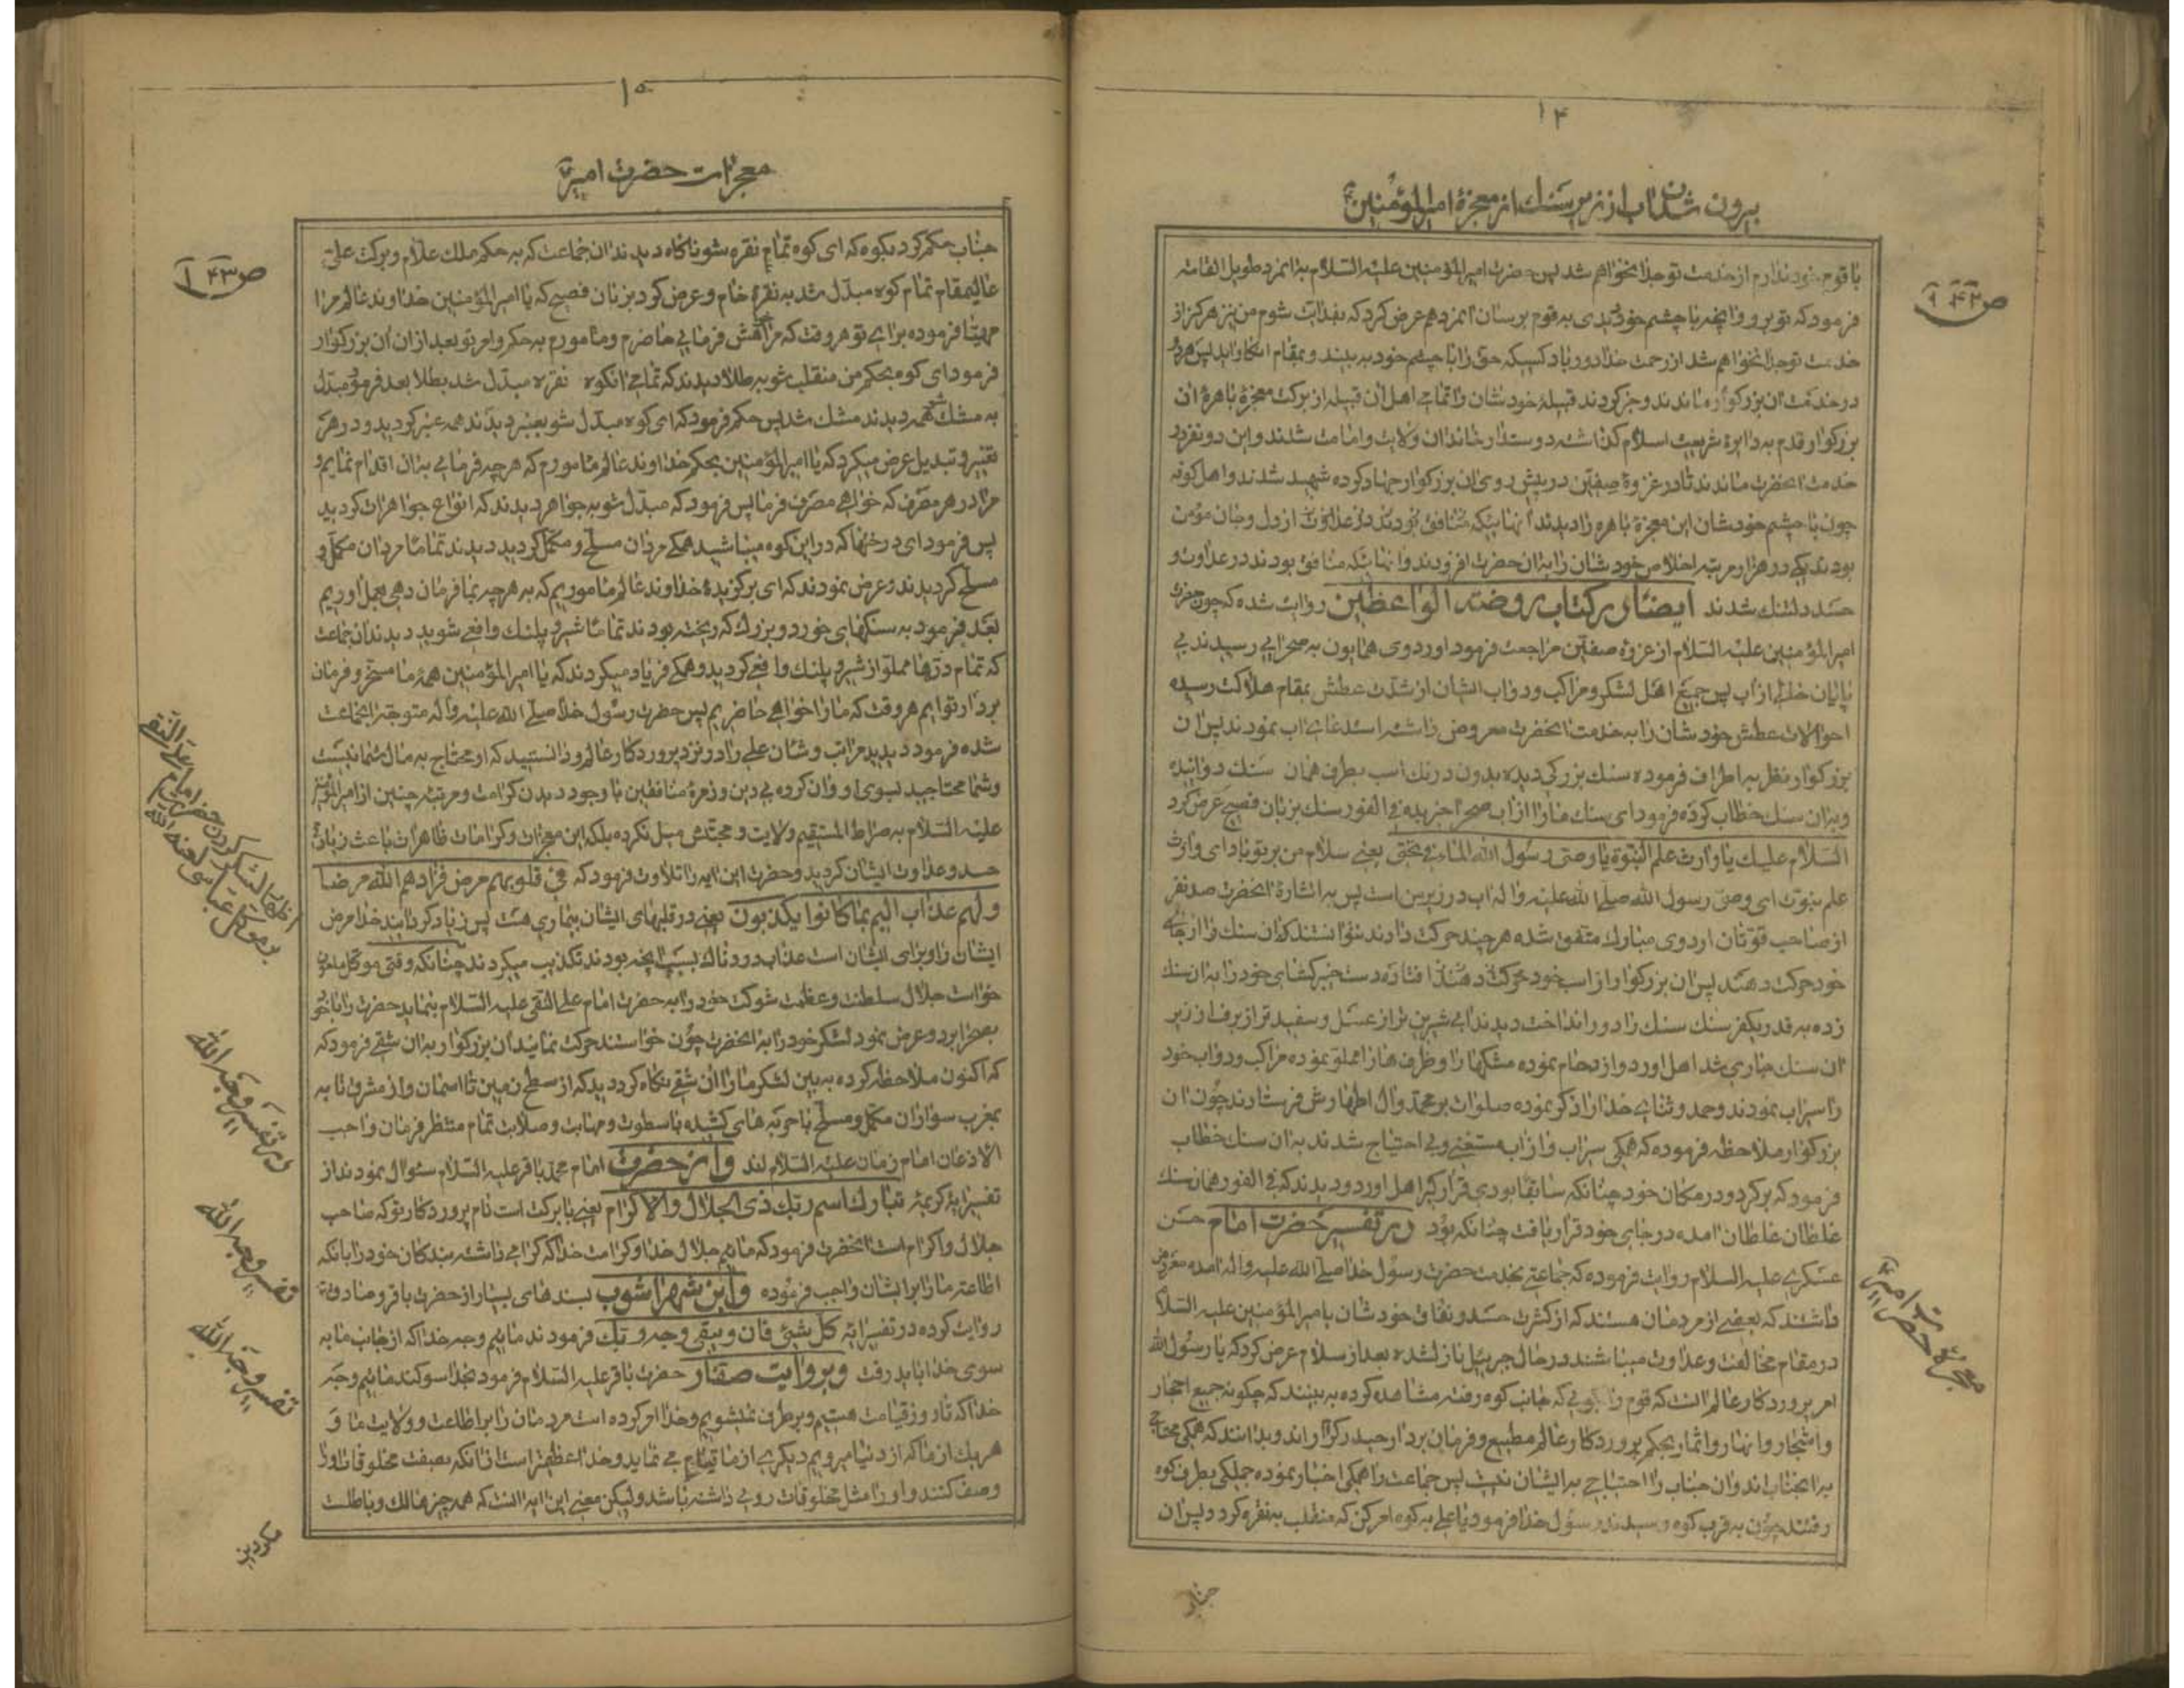 ۱۴
بیرون شدن آب از زیر سنک از معجزهٔ امیرالمؤمنین
ص ۱۴۲
با قوم خود ندارم از خدمت تو جدا نخواهم شد پس حضرت امیرالمؤمنین علیه السلام به انمرد طویل القامه
فرمود که تو برو و انچه با چشم خود دیدی به قوم برسان انمرد هم عرض کرد که بفدایت شوم من نیز هرکز از
خدمت تو جدا نخواهم شد از رحمت خدا دور باد کسیکه حق را با چشم خود به بیند و بمقام انکار اید پس هر دو
در خدمت ان بزرکوار ماندند و خبر کردند قبیلهٔ خودشان را تمامی اهل ان قبیله از برکت معجزهٔ باهرهٔ ان
بزرکوار قدم به دایرهٔ شریعت اسلام کذاشته دوستدار خاندان ولایت و امامت شدند و این دو نفر در
خدمت انحضرت ماندند تا در غزوهٔ صفین در پیش روی ان بزرکوار جهاد کرده شهید شدند و اهل کوفه
چون با چشم خودشان این معجزهٔ باهره را دیدند انهائیکه از دل و جان مؤمن
بودند یکی در هزار مرتبه اخلاص خودشان را به ان حضرت افزودند و انهائیکه منافق بودند در عداوت و
حسد دلتنك شدند ایضا در کتاب روضة الواعظین روایت شده که چون حضرت
امیرالمؤمنین علیه السلام از غزوهٔ صفین مراجعت فرمود اوردوی همایون به صحرایی رسیدند بی
پایان خالی از اب پس جمیع اهل لشکر و مراکب و دواب ایشان از شدت عطش بمقام هلاکت رسیده
احوالات عطش خودشان را به خدمت انحضرت معروض داشته استدعای اب نمودند پس ان
بزرکوار نظر به اطراف فرموده سنك بزرکی دیده بدون درنك اسب بطرف همان سنك دوانیده
و بران سنك خطاب کرده فرمود ای سنك ما را از اب صحرا خبر بده فی الفور سنك بزبان فصیح عرض کرد
السلام علیك یا وارث علم النبوة یا وصی رسول الله الماء تحتی یعنی سلام من بر تو باد ای وارث
علم نبوت ای وصی رسول الله صلی الله علیه و اله اب در زیر من است پس به اشارهٔ انحضرت صد نفر
از صاحب قوتان اردوی مبارك متفق شده هر چند حرکت دادند نتوانستند که ان سنك را از جای
خود حرکت دهند پس ان بزرکوار از اسب خود دست خیبر کشای خود را به ان سنك
زده به قدر یکفرسنك سنك را دور انداخت دیدند ابی شیرین تر از عسل و سفید تر از برف از زیر
ان سنك جاری شد اهل اوردو ازدحام نموده مشکها را و ظرفها را مملو نموده مراکب و دواب خود
را سیراب نمودند و حمد و ثنای خدا را ذکر نموده صلوات بر محمد و ال اطهارش فرستادند چون ان
بزرکوار ملاحظه فرموده که همکی سیراب و از اب مستغنی و بی احتیاج شدند به ان سنك خطاب
فرمود که برکرد و در مکان خود چنانکه سابقا بودی قرار کیر اهل اوردو دیدند که فی الفور همان سنك
غلطان غلطان امده در جای خود قرار یافت چنانکه بود در تفسیر حضرت امام حسن
عسکری علیه السلام روایت فرموده که جماعتی بخدمت حضرت رسول خدا صلی الله علیه و اله امده معروض
داشتند که بعضی از مردمان هستند که از کثرت حسد و نفاق خودشان بامیرالمؤمنین علیه السلام
در مقام مخالفت و عداوت میباشند در حال جبرئیل نازل شده بعد از سلام عرض کرد که یا رسول الله
امر پروردکار عالم است که قوم را بکوئی که جانب کوه رفته مشاهده کرده به بینند که چکونه جمیع احجار
و اشجار و انهار و اثمار بحکم پروردکار عالم مطیع و فرمان بردار حیدر کرار اند و بدانند که همکی محتاج
به انجناب اند و ان جناب را احتیاج به ایشان نیست پس جماعت را همکی اخبار نموده جملکی بطرف کوه
رفتند چون به قرب کوه رسیدند رسول خدا فرمود یا علی به کوه امر کن که منقلب به نقره کردد پس ان
معجزهٔ حضرت امیر
جناب
۱۵
معجزات حضرت امیر
ص ۱۴۳
جناب حکم کرد بکوه که ای کوه تمام نقره شو ناکاه دیدند ان جماعت که به حکم ملك علام و برکت علی
عالیمقام تمام کوه مبدل شد به نقرهٔ خام و عرض کرد بزبان فصیح که یا امیرالمؤمنین خداوند عالم مرا
مهیا فرموده برای تو هر وقت که مرا فرمایی حاضرم و مامورم به حکم و امر تو بعد از ان ان بزرکوار
فرمود ای کوه بحکم من منقلب شو به طلا دیدند که تمامی انکوه نقره مبدل شد بطلا بعد فرمود مبدل
به مشك شو همه دیدند مشك شد پس حکم فرمود که ای کوه مبدل شو بعنبر دیدند همه عنبر کردید و در هر
تغییر و تبدیل عرض میکرد که یا امیرالمؤمنین بحکم خداوند عالم مامورم که هر چه فرمایی به ان اقدام نمایم و
مرا در هر مصرف که خواهی مصرف فرما پس فرمود که مبدل شو به جواهر دیدند که انواع جواهرات کردید
پس فرمود ای درختها که در این کوه میباشید همکی مردان مسلح و مکمل کردید دیدند تماما مردان مکمل و
مسلح کردیدند و عرض نمودند که ای برکزیدهٔ خداوند عالم ماموریم که به هر چه بما فرمان دهی بعمل اوریم
بعد فرمود به سنکهای خورد و بزرك که ریخته بودند تماما شیر و پلنك واقعی شوید دیدند ان جماعت
که تمام درها مملو از شیر و پلنك واقع کردید و همکی فریاد میکردند که یا امیرالمؤمنین همهٔ ما مسخر و فرمان
بردار توایم هر وقت که ما را خواهی حاضریم پس حضرت رسول خدا صلی الله علیه و اله متوجه انجماعت
شده فرمود دیدید مراتب و شان علی را در نزد پروردکار عالم و دانستید که او محتاج به مال شما نیست
و شما محتاجید بسوی او و ان کروه بی دین و زمرهٔ منافقین با وجود دیدن کرامت و مرتبه چنین از امیرالمؤمنین
علیه السلام به صراط المستقیم ولایت و محبتش میل نکرده بلکه این معجزات و کرامات ظاهرات باعث زیادتی
حسد و عداوت ایشان کردید و حضرت این ایه را تلاوت فرمود که فی قلوبهم مرض فزادهم الله مرضا
و لهم عذاب الیم بما کانوا یکذبون یعنی در قلبهای ایشان بیماری هست پس زیاد کردانید خدا مرض
ایشان را و برای ایشان است عذاب دردناك بسبب انچه بودند تکذیب میکردند چنانکه وقتی متوکل ملعون
خواست جلال سلطنت و عظمت شوکت خود را به حضرت امام علی النقی علیه السلام بنماید حضرت را با خود
بصحرا برد و عرض نمود لشکر خود را به انحضرت چون خواستند حرکت نمایند ان بزرکوار به ان شقی فرمود که
که اکنون ملاحظه کرده به بین لشکر ما را ان شقی نکاه کرد دید که از سطح زمین تا اسمان و از مشرق تا به
بمغرب سواران مکمل و مسلح با حربه های کشیده با سطوت و مهابت و صلابت تمام منتظر فرمان واجب
الاذعان امام زمان علیه السلام اند و از حضرت امام محمد باقر علیه السلام سئوال نمودند از
تفسیر ایهٔ کریمهٔ تبارك اسم ربك ذی الجلال و الاکرام یعنی با برکت است نام پروردکار تو که صاحب
جلال و اکرام است انحضرت فرمود که مائیم جلال خدا و کرامت خدا که کرامی داشته بندکان خود را بانکه
اطاعت ما را بر ایشان واجب فرموده و ابن شهراشوب بسندهای بسیار از حضرت باقر و صادق
روایت کرده در تفسیر ایه کل شیئ فان و یبقی وجه ربك فرمودند مائیم وجه خدا که از جانب ما به
سوی خدا باید رفت و بروایت صفار حضرت باقر علیه السلام فرمود بخدا سوکند مائیم وجه
خدا که تا روز قیامت هستیم و برطرف نمیشویم و خدا امر کرده است مردمان را بر اطاعت و ولایت ما و
هر یك از ما که از دنیا میرویم دیکری از ما قیام می نماید و خدا اعظم تر است از انکه بصفت مخلوقات او را
وصف کنند و او را مثل مخلوقات رویی داشته باشد ولیکن معنی این ایه انست که همه چیز هالك و باطلست
اظهار لشکر کردن حضرت امام علی النقی
بر متوکل عباسی لعنه الله
در تفسیر وجه الله
تفسیر وجه الله
تفسیر وجه الله